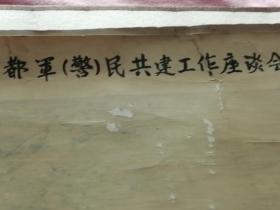 都軍(警)民共建工作座谈会